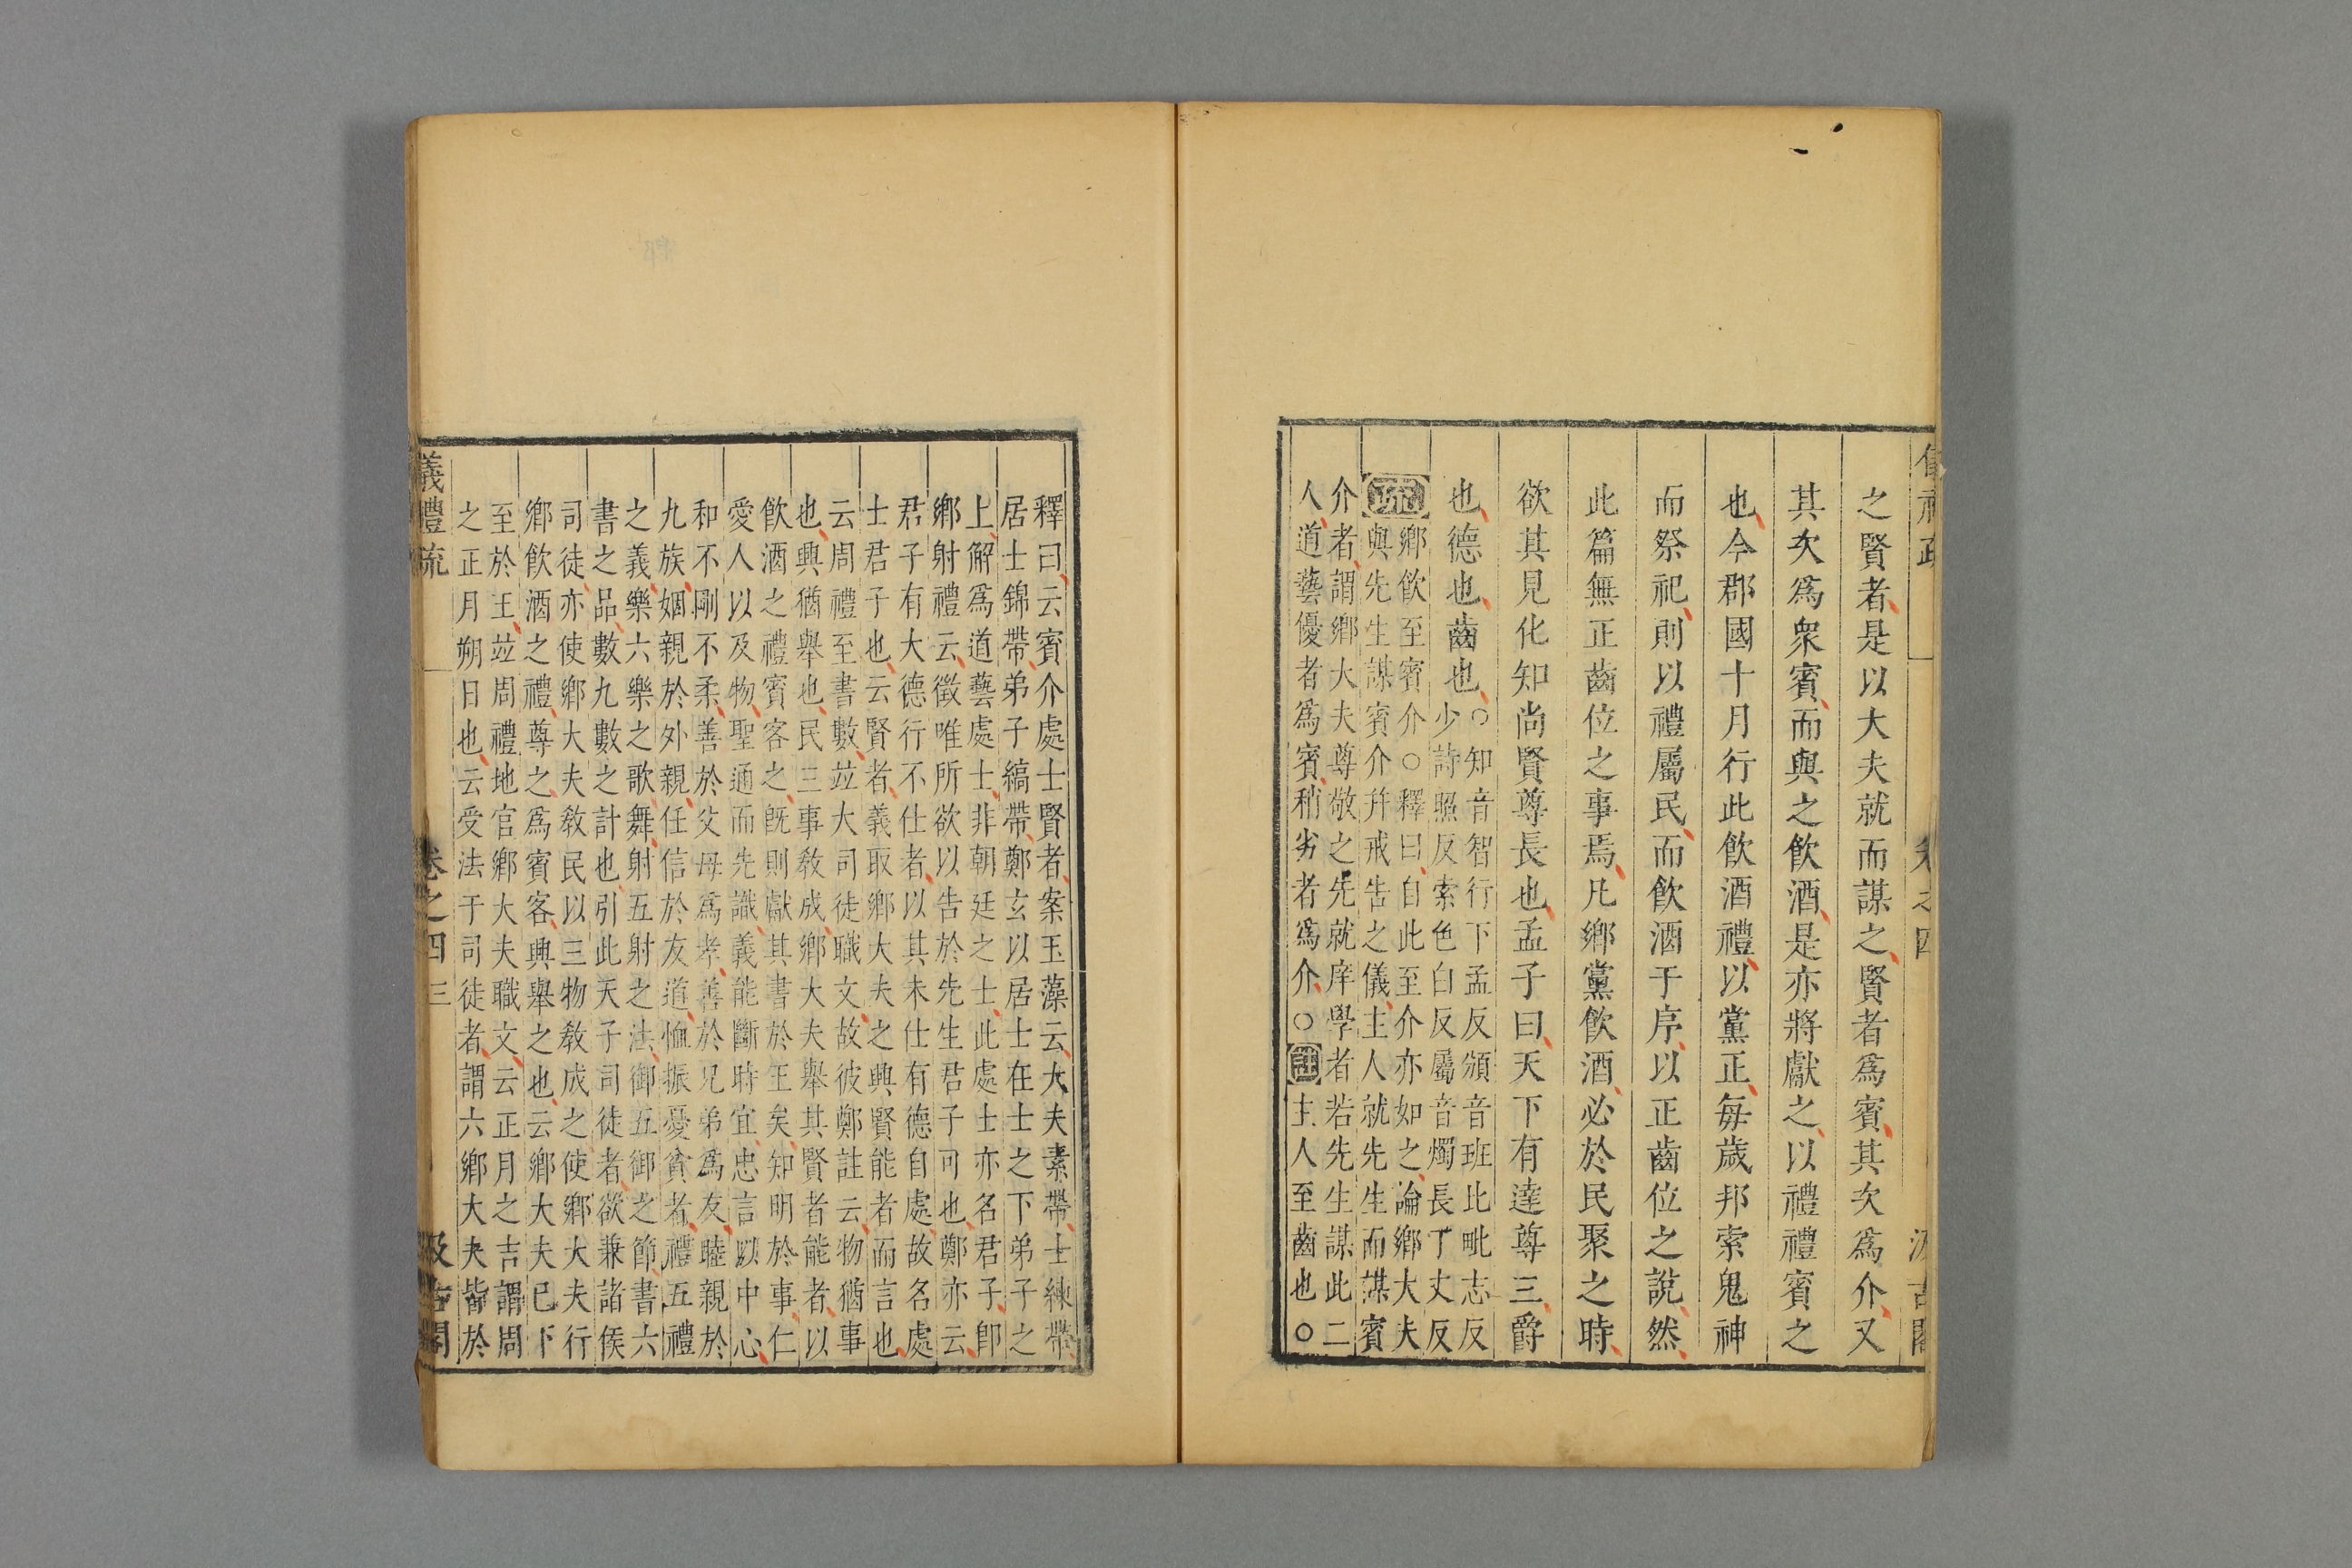 之賢者是以大夫就而謀之賢者爲賓其次爲介又
其次爲衆賓而與之飲酒是亦將獻之以禮禮賓之
也今郡國十月行此飲酒禮以黨正每歲邦索鬼神
而祭祀則以禮屬民而飲酒于序以正齒位之說然
此篇無正齒位之事焉凡鄉黨飲酒必於民聚之時
欲其見化知尚賢尊長也孟子曰天下有達尊三爵
也德也齒也
○知音智行下孟反頒音班比毗志反
少詩照反索色白反屬音燭長丁丈反
疏
鄉飲至賓介○釋曰自此至介亦如之論鄉大夫
與先生謀賓介并戒告之儀主人就先生而謀賓
介者謂鄉大夫尊敬之先就庠學者若先生謀此二
人道藝優者爲賓稍劣者爲介○註主人至齒也○
釋曰云賓介處士賢者案玉藻云大夫素帶士練帶
居士錦帶弟子縞帶鄭玄以居士在士之下弟子之
上解爲道藝處士非朝廷之士此處士亦名君子卽
鄉射禮云徵唯所欲以告於先生君子可也鄭亦云
君子有大德行不仕者以其未仕有德自處故名處
士君子也云賢者義取鄉大夫之興賢能者而言也
云周禮至書數竝大司徒職文故彼鄭註云物猶事
也興猶舉也民三事教成鄉大夫舉其賢者能者以
飲酒之禮賓客之旣則獻其書於王矣知明於事仁
愛人以及物聖通而先識義能斷時宜忠言以中心
和不剛不柔善於父母爲孝善於兄弟爲友睦親於
九族姻親於外親任信於友道恤振憂貧者禮五禮
之義樂六樂之歌舞射五射之法御五御之節書六
書之品數九數之計也引此天子司徒者欲兼諸侯
司徒亦使鄉大夫教民以三物教成之使鄉大夫行
鄉飲酒之禮尊之爲賓客興舉之也云鄉大夫已下
至於王竝周禮地官鄉大夫職文云正月之吉謂周
之正月朔日也云受法于司徒者謂六鄉大夫皆於
儀禮疏
卷之四
三
汲古閣